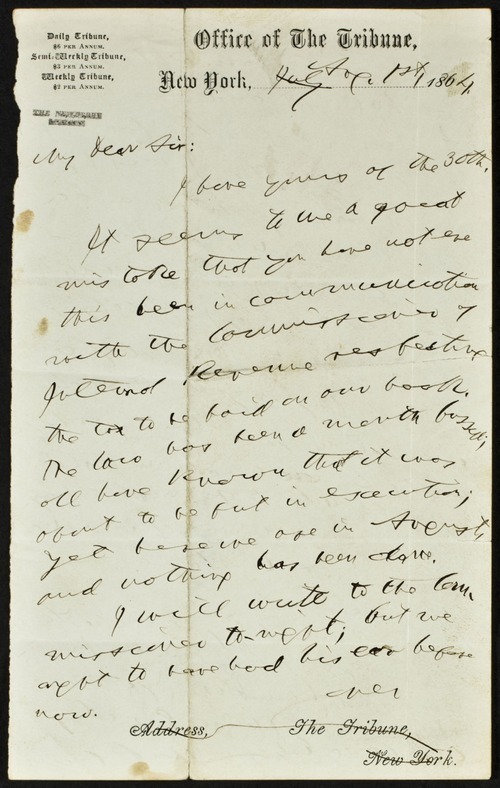 Daily Tribune,
$6 PER ANNUM.
Semi-Weekly Tribune,
$3 PER ANNUM.
Weekly Tribune,
$2 PER ANNUM.
Office of The Tribune,
New York, July Aug. 1st, 1864.
My Dear Sir:
I have yours of the 30th.
It seems to me a great
mistake that you have not ere
this been in communication
with the Commissioner of
Internal Revenue respecting
the tax to be paid on our book.
The law has been a month passed;
all have known that it was
about to be put in execution;
yet here we are in August,
and nothing has been done.
I will write to the Com-
missioner to-night; but we
ought to have had his ear before
now.
over
Address, The Tribune,
New York.